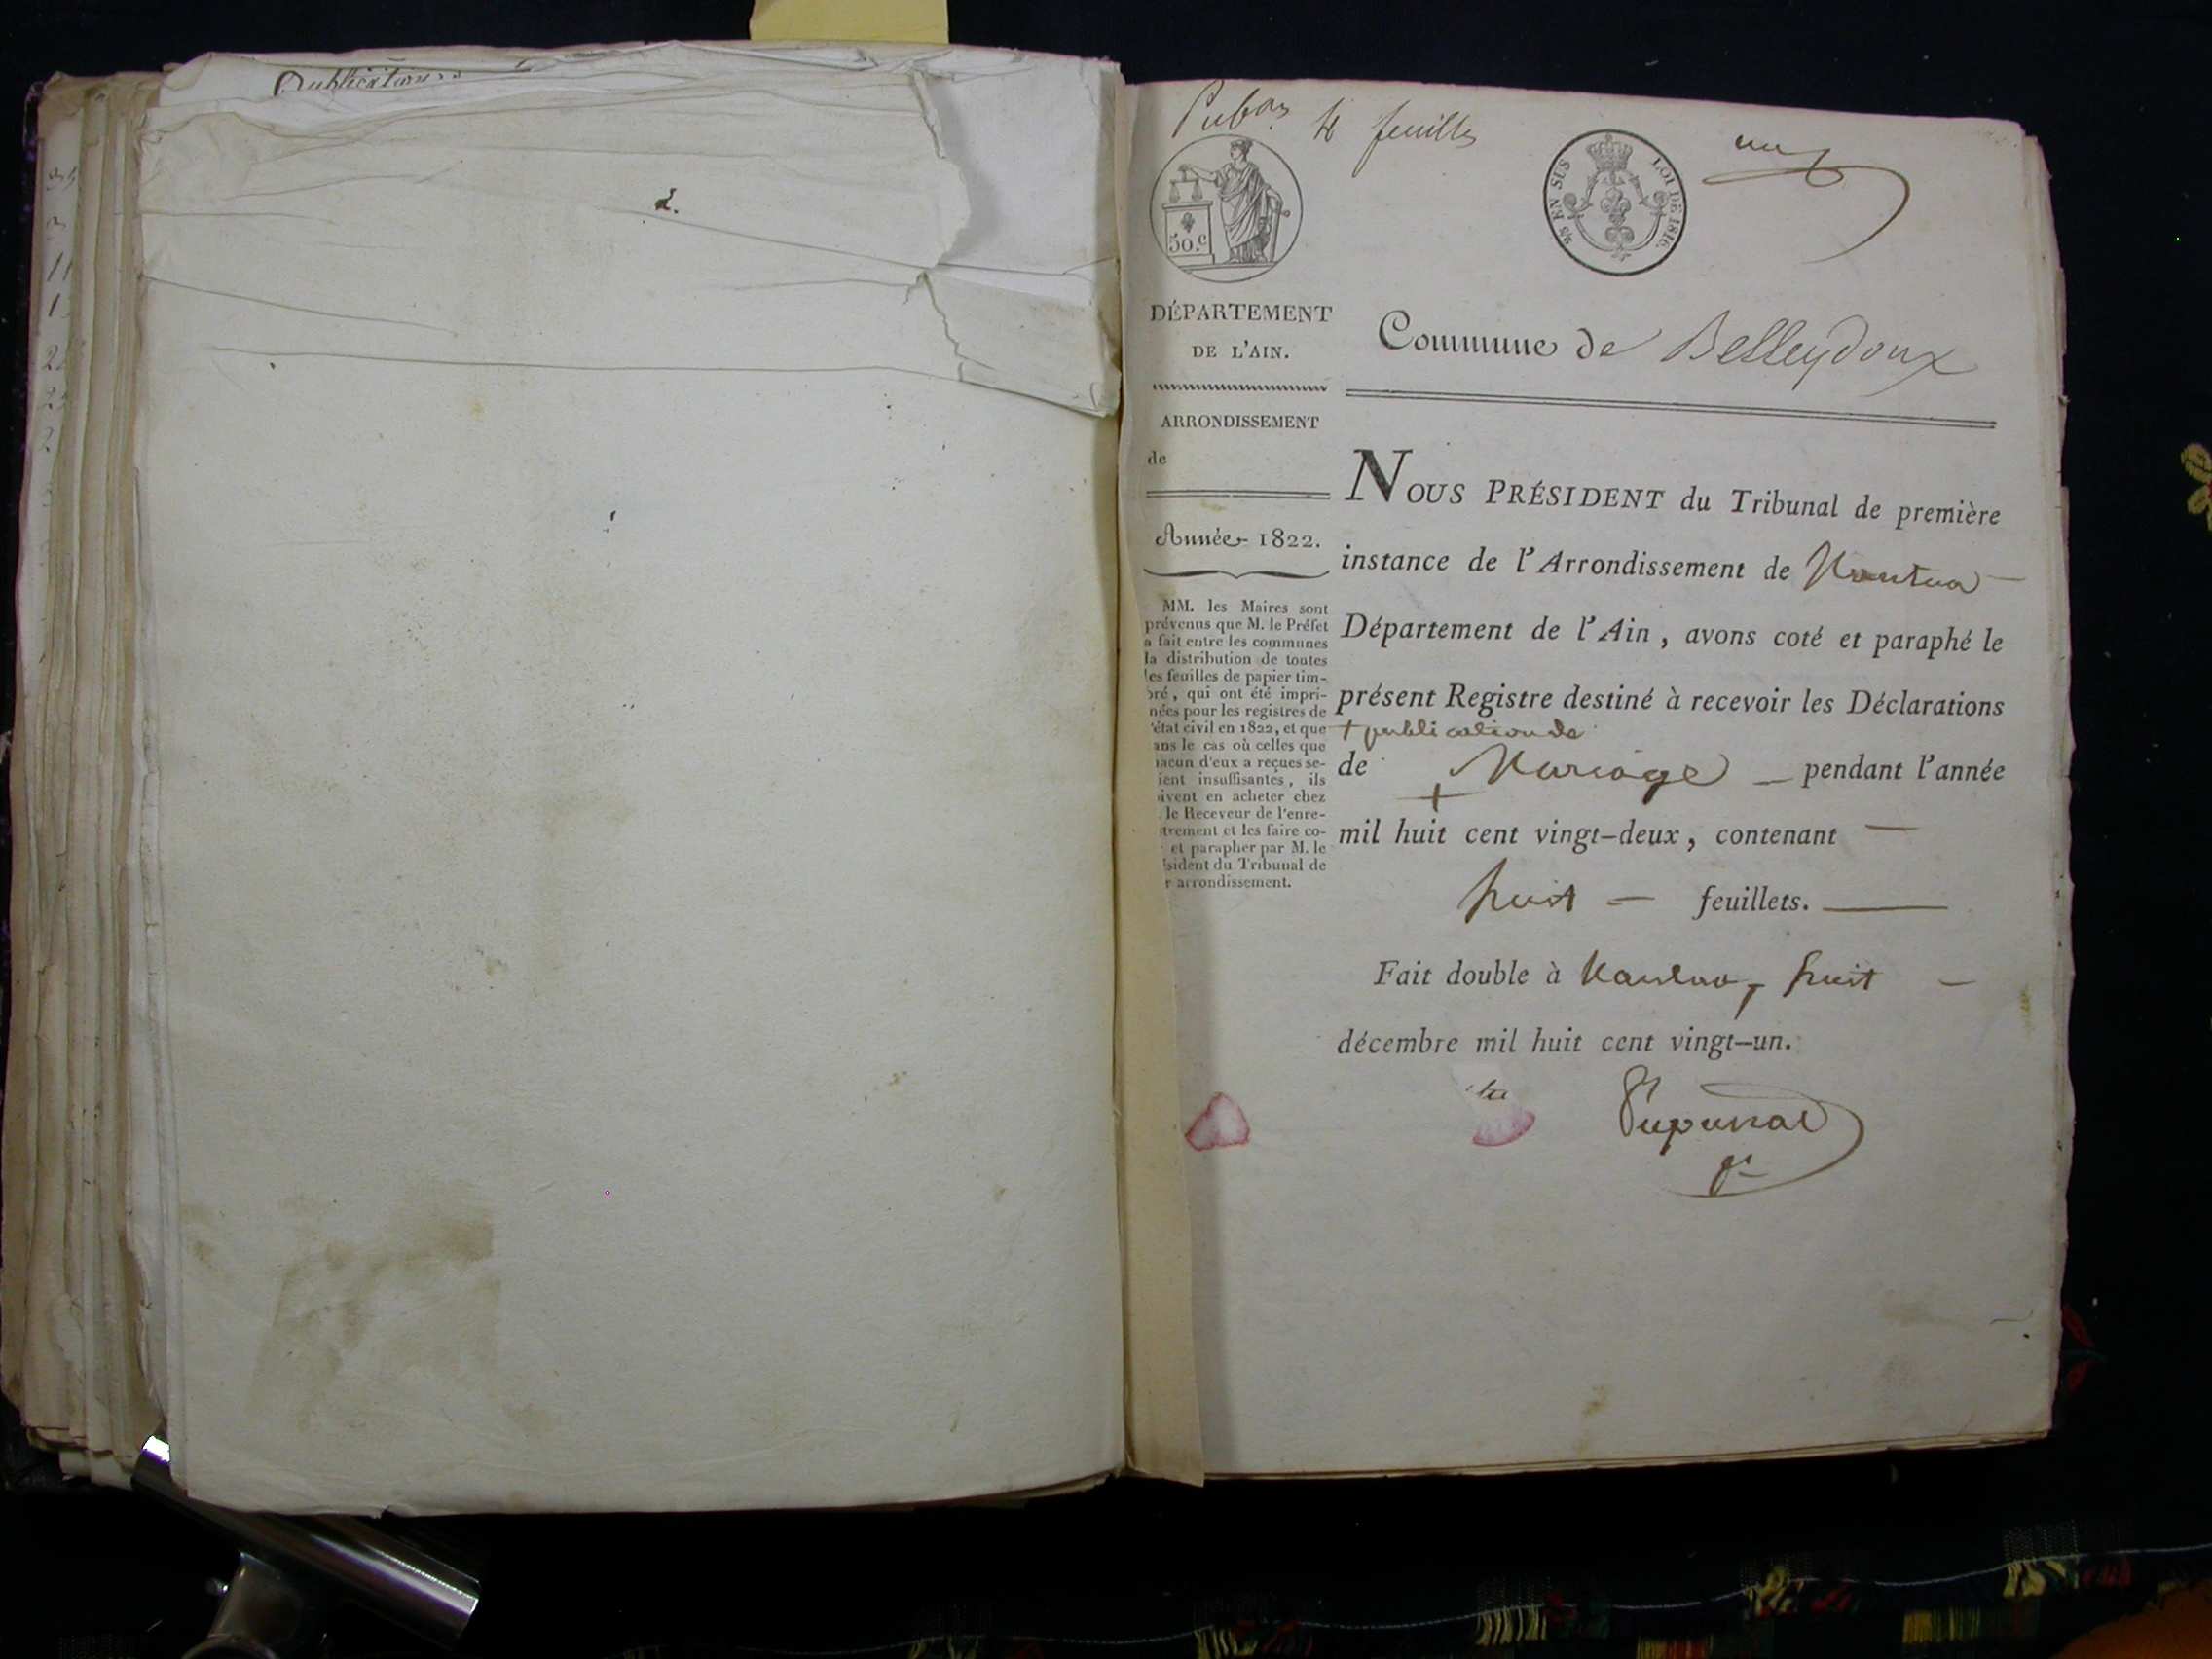 Publications
Pubon 4 feuilles
un
50.c
25 EN SUS
LOI DE 1816.
DÉPARTEMENT
DE L'AIN.
ARRONDISSEMENT
de
Année 1822.
MM. les Maires sont
prévenus que M. le Préfet
a fait entre les communes
la distribution de toutes
les feuilles de papier tim-
bré, qui ont été impri-
mées pour les registres de
l'état civil en 1822, et que
ans le cas où celles que
hacun d'eux a reçues se-
ient insuffisantes, ils
oivent en acheter chez
le Receveur de l'enre-
strement et les faire co-
et parapher par M. le
sident du Tribunal de
r arrondissement.
Commune de Belleydoux
NOUS PRÉSIDENT du Tribunal de première
instance de l'Arrondissement de Nantua
Département de l'Ain, avons coté et paraphé le
présent Registre destiné à recevoir les Déclarations
+ publication de
de Mariage pendant l'année
+
mil huit cent vingt-deux, contenant
huit feuillets.
Fait double à Nantua, huit
décembre mil huit cent vingt-un.